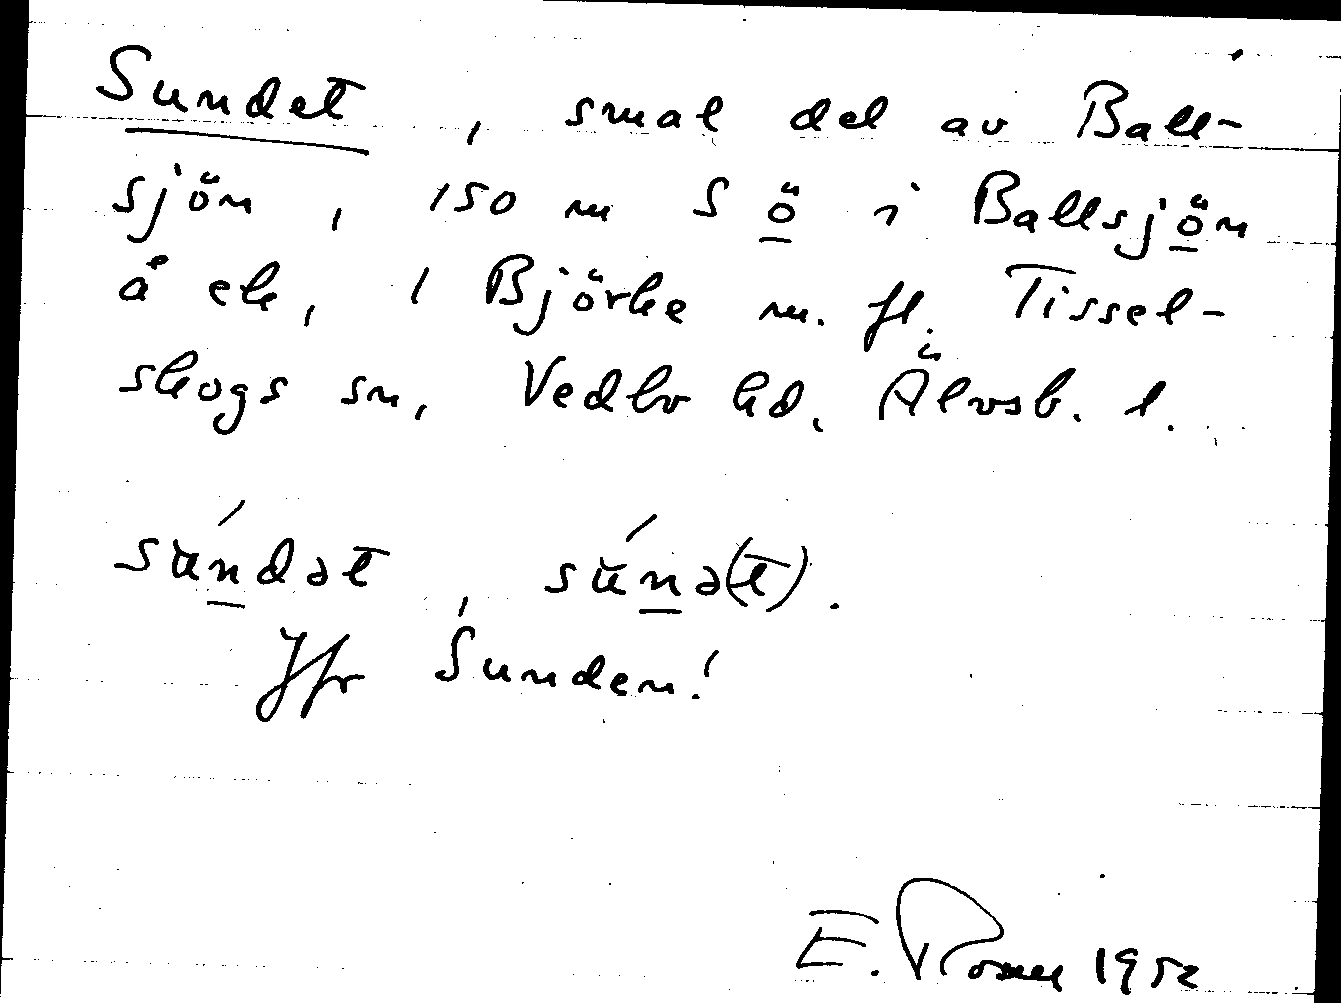 Sundet, smal del av Ball-
sjön, 150 m S ö i Ballsjön
å ek, 1 Björke m. fl. Tissel-
skogs sn, Vedbo hd. Älvsb. l.
súndət, súnə(t).
Jfr Sunden!
E. Rosell 1952